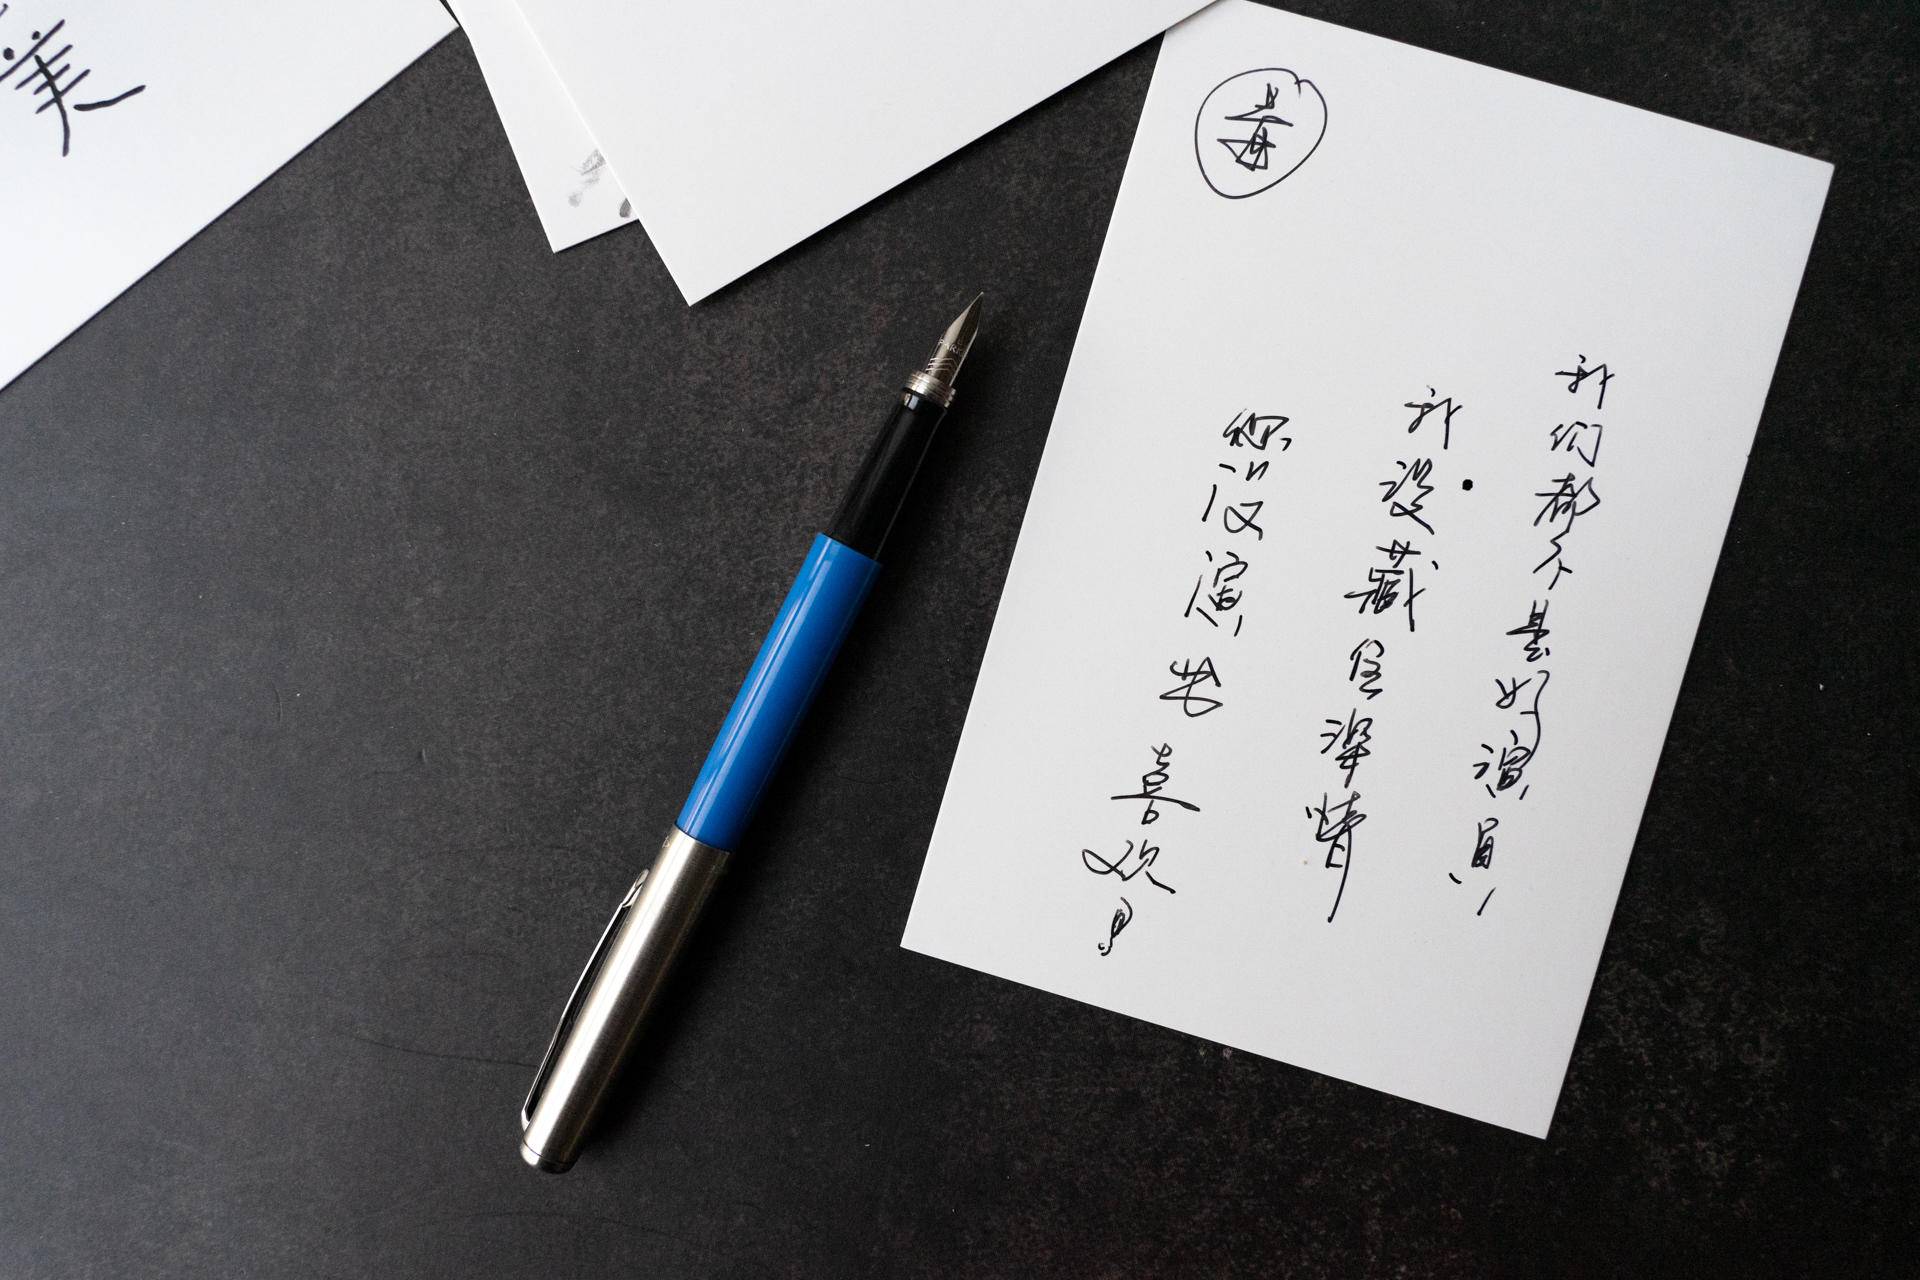 我们都不是好演员
我没藏住深情
你没演出喜欢
美
PARKER